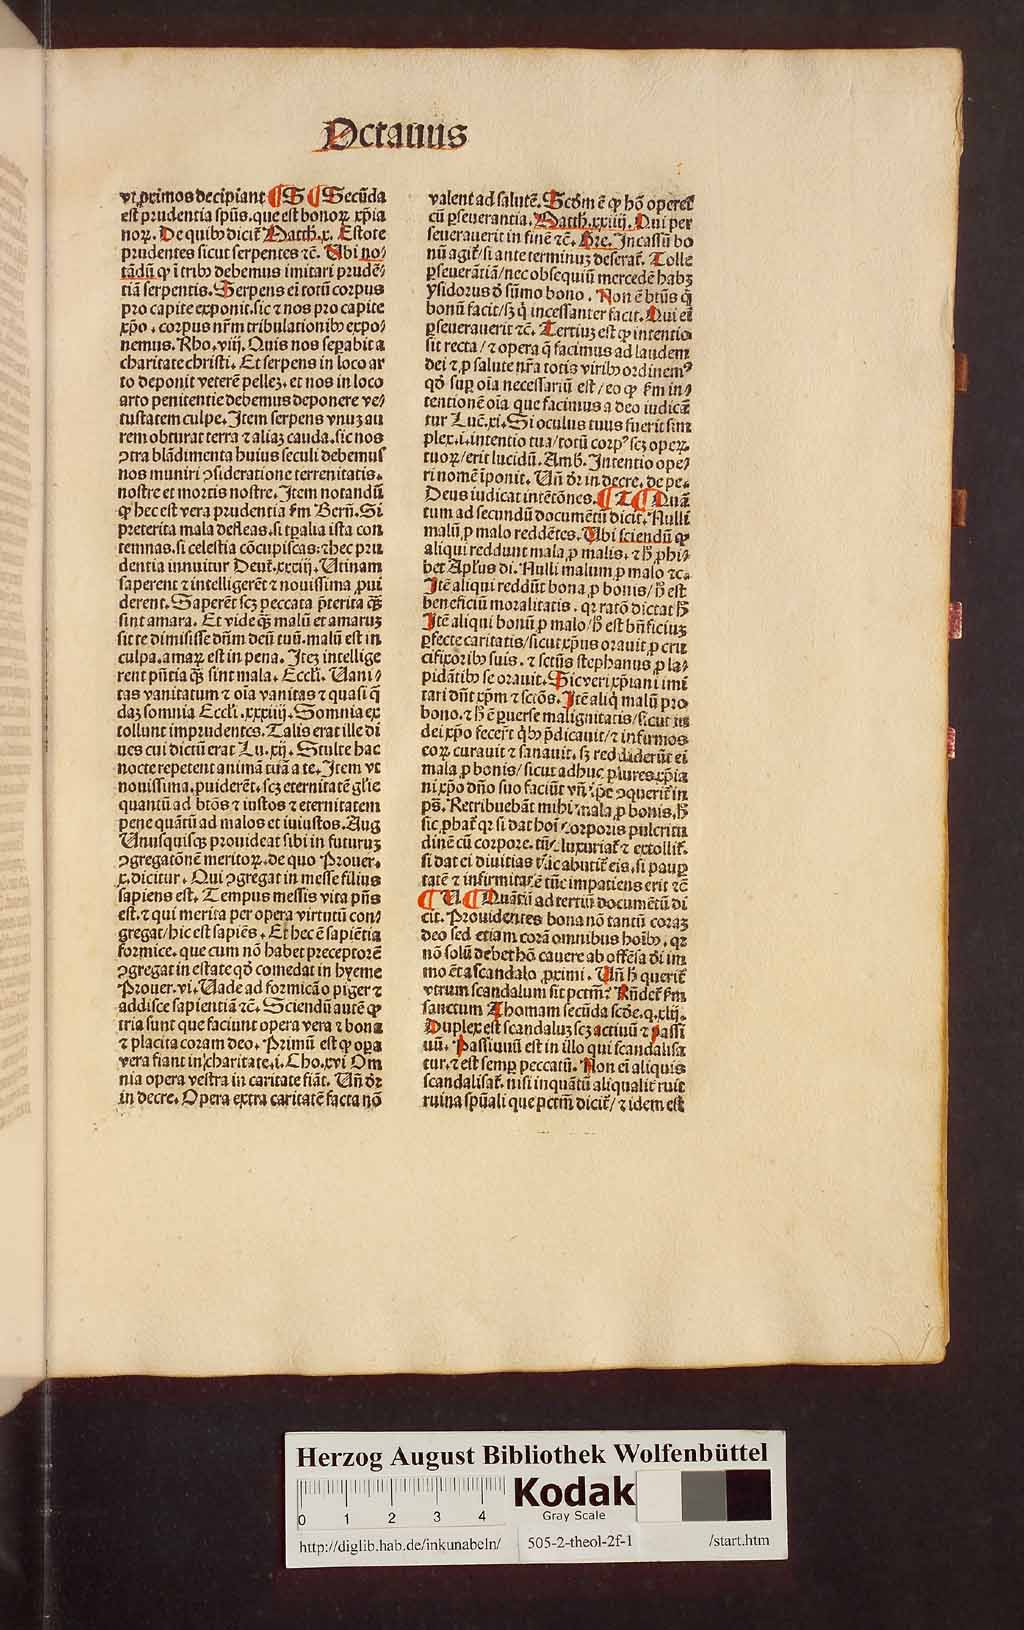 Octauus
vt ꝓximos decipiant ¶ S ¶ Secūda
est prudentia spūs. que est bonoꝝ xp̄ia
noꝝ. De quibꝰ dicit᷑ Matth.x. Estote
prudentes sicut serpentes ⁊c̄. Ubi no/
tādū ꝙ ī tribꝰ debemus imitari prudē/
tiā serpentis. Serpens ei̅ totū corpus
pro capite exponit. sic ⁊ nos pro capite
xp̄o. corpus nr̄m tribulationibꝰ expo/
nemus. Rho. viij. Quis nos seꝑabit a
charitate christi. Et serpens in loco ar
to deponit veterē pelleȝ. et nos in loco
arto penitentie debemus deponere ve/
tustatem culpe. Item serpens vnuȝ au
rem obturat terra ⁊ aliaȝ cauda. sic nos
ꝯtra blādimenta huius seculi debemus
nos muniri ꝯsideratione terrenitatis.
nostre et mortis nostre. Item notandū
ꝙ hec est vera prudentia s̄m Bern̄. Si
preterita mala defleas. si tꝑalia ista con
temnas. si celestia cōcupiscas: ⁊ hec pru
dentia innuitur Deut̄. xxxij. Utinam
saperent ⁊ intelligerēt ⁊ nouissima ꝓui
derent. Saperēt scȝ peccata p̄terita q̄ȝ
sint amara. Et vide q̄ȝ malū et amaruȝ
sit te dimisisse dn̄m deū tuū. malū est in
culpa. amaꝝ est in pena. Iteȝ intellige
rent pn̄tia q̄ȝ sint mala. Eccl̄i. Uani/
tas vanitatum ⁊ oīa vanitas ⁊ quasi q̄
daȝ somnia Eccl̄i. xxxiiij. Somnia ex
tollunt imprudentes. Talis erat ille di
ues cui dictū erat Lu. xij. Stulte hac
nocte repetent animā tuā a te. Item vt
nouissima. ꝓuiderēt. scȝ eternitatē gl̄ie
quantū ad btōs ⁊ iustos ⁊ eternitatem
pene quātū ad malos et iniustos. Aug
Unusquisqȝ prouideat sibi in futuruȝ
ꝯgregatōnē meritoꝝ. de quo Prouer.
x. dicitur. Qui ꝯgregat in messe filius
sapiens est. Tempus messis vita pn̄s
est. ⁊ qui merita per opera virtutū con/
gregat / hic est sapiēs. Et hec ē sapiētia
formice. que cum nō habet preceptorē
ꝯgregat in estate qd̄ comedat in hyeme
Prouer. vi. Uade ad formicā o piger ⁊
addisce sapientiā ⁊c̄. Sciendū autē ꝙ
tria sunt que faciunt opera vera ⁊ bona
⁊ placita coram deo. Primū est ꝙ oꝑa
vera fiant in charitate. i. Cho. xvi Om
nia opera vestra in caritate fiāt. Un̄ dr̄
in decre. Opera extra caritatē facta nō
valent ad salutē. Scd̄m ē ꝙ hō operet᷑
cū ꝑseuerantia. Matth. xxiiij. Qui per
seuerauerit in finē ⁊c̄. Gre. Incassū bo
nū agit᷑ / si ante terminuȝ deserat᷑. Tolle
ꝑseuerātiā / nec obsequiū mercedē habȝ
ysidorus d̄ sūmo bono. Non ē bt̄us q̄
bonū facit / sȝ q̄ incessanter facit. Qui ei̅
ꝑseuerauerit ⁊c̄. Tertiuȝ est ꝙ intentio
sit recta / ⁊ opera q̄ facimus ad laudem
dei ⁊ ꝓ salute nr̄a totis viribꝰ ordinemꝰ
qd̄ suꝑ oīa necessariū est / eo ꝙ s̄m in/
tentionē oīa que facimus a deo iudicā
tur Luc̄. xi. Si oculus tuus fuerit sim
plex. i. intentio tua / totū corpꝰ scȝ opeꝝ
tuoꝝ / erit lucidū. Amb̄. Intentio ope/
ri nomē īponit. Un̄ dr̄ in decre. de pe.
Deus iudicat intētōnes. ¶ T ¶ Quā
tum ad secundū documētū dicit. Nulli
malū ꝓ malo reddētes. Ubi sciendū ꝙ
aliqui reddunt mala ꝓ malis. ⁊ h̄ ꝓhi/
bet Apl̄us di. Nulli malum ꝓ malo ⁊c.
Itē aliqui reddūt bona ꝓ bonis / h̄ est
beneficiū moralitatis. qꝛ ratō dictat h̄
Itē aliqui bonū ꝓ malo / h̄ est bn̄ficiuȝ
ꝑfecte caritatis / sicut xp̄us orauit ꝓ cru
cifixoribꝰ suis. ⁊ sctūs stephanus ꝓ la/
pidātibꝰ se orauit. Sic veri xp̄iani imi
tari dn̄t xp̄m ⁊ sctōs. Itē aliq̄ malū pro
bono. ⁊ h̄ ē ꝑuerse malignitatis / sicut iu
dei xp̄o fecer̄t q̄bꝰ p̄dicauit / ⁊ infirmos
eoꝝ curauit ⁊ sanauit. sȝ reddiderūt ei
mala ꝓ bonis / sicut adhuc plures xp̄ia
ni xp̄o dn̄o suo faciūt vn̄ ip̄e ꝯquerit᷑ in
ps̄. Retribuebāt mihi mala ꝓ bonis. h̄
sic ꝓbat᷑ qꝛ si dat hoī corporis pulcritu
dinē cū corpore. tūc luxuriat᷑ ⁊ extollit᷑.
si dat ei diuitias tūc abutit᷑ eis. si pauꝑ
tatē ⁊ infirmitatē tūc impatiens erit ⁊c̄
¶ U. ¶ Quātū ad tertiū documētū di
cit. Prouidentes bona nō tantū coraȝ
deo sed etiam corā omnibus hoībꝰ. qꝛ
nō solū debet hō cauere ab offēsa dei im
mo ēt a scandalo ꝓximi. Un̄ h̄ querit᷑
vtrum scandalum sit pctm̄? Rn̄det᷑ s̄m
sanctum Thomam secūda scd̄e. q. xliij.
Duplex est scandaluȝ scȝ actiuū ⁊ passi
uū. Passiuuū est in illo qui scandalisa
tur. ⁊ est semꝑ peccatū. Non ei̅ aliquis
scandalisat᷑. nisi inquātū aliqualit᷑ ruit
ruina spūali que pctm̄ dicit᷑ / ⁊ idem est
Herzog August Bibliothek Wolfenbüttel
0 1 2 3 4
Kodak
Gray Scale
http://diglib.hab.de/inkunabeln/ 505-2-theol-2f-1 /start.htm